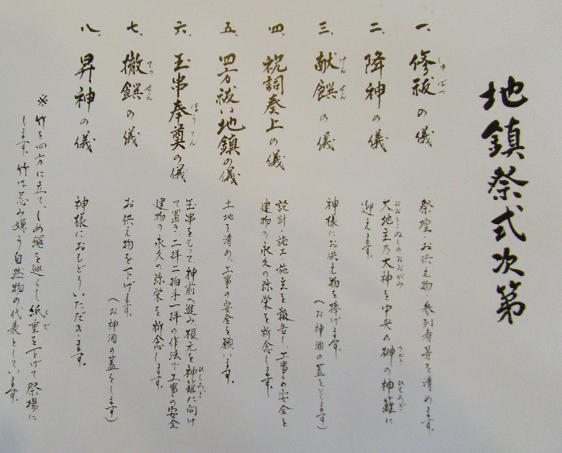 地鎮祭式次第
一、修祓の儀
しゅばつ
祭壇、お供え物、参列者等を清めます。
二、降神の儀
大地主乃大神を中央の榊の神籬に
おおとこぬしのおおかみ
さかき
ひもろぎ
迎えます。
三、献饌の儀
けんせん
神様にお供え物を捧げます。
(お神酒の蓋をとります)
四、祝詞奏上の儀
設計、施工、施主を報告し、工事の安全と
建物の永久の弥栄を祈念します。
五、四方祓い地鎮の儀
土地を清め、工事の安全を願います。
六、玉串奉奠の儀
ほうてん
玉串をもって神前へ進み根元を神籬に向け
ひもろぎ
て置き二拝二拍手一拝の作法で工事の安全
建物の永久の弥栄を祈念します。
七、撤饌の儀
てっせん
お供え物を下げます。
(お神酒の蓋をします)
八、昇神の儀
神様におもどりいただきます。
※竹を四方に立て、しめ縄を巡らし紙垂を下げて祭場に
します。竹は忌み嫌う自然物の代表としています。